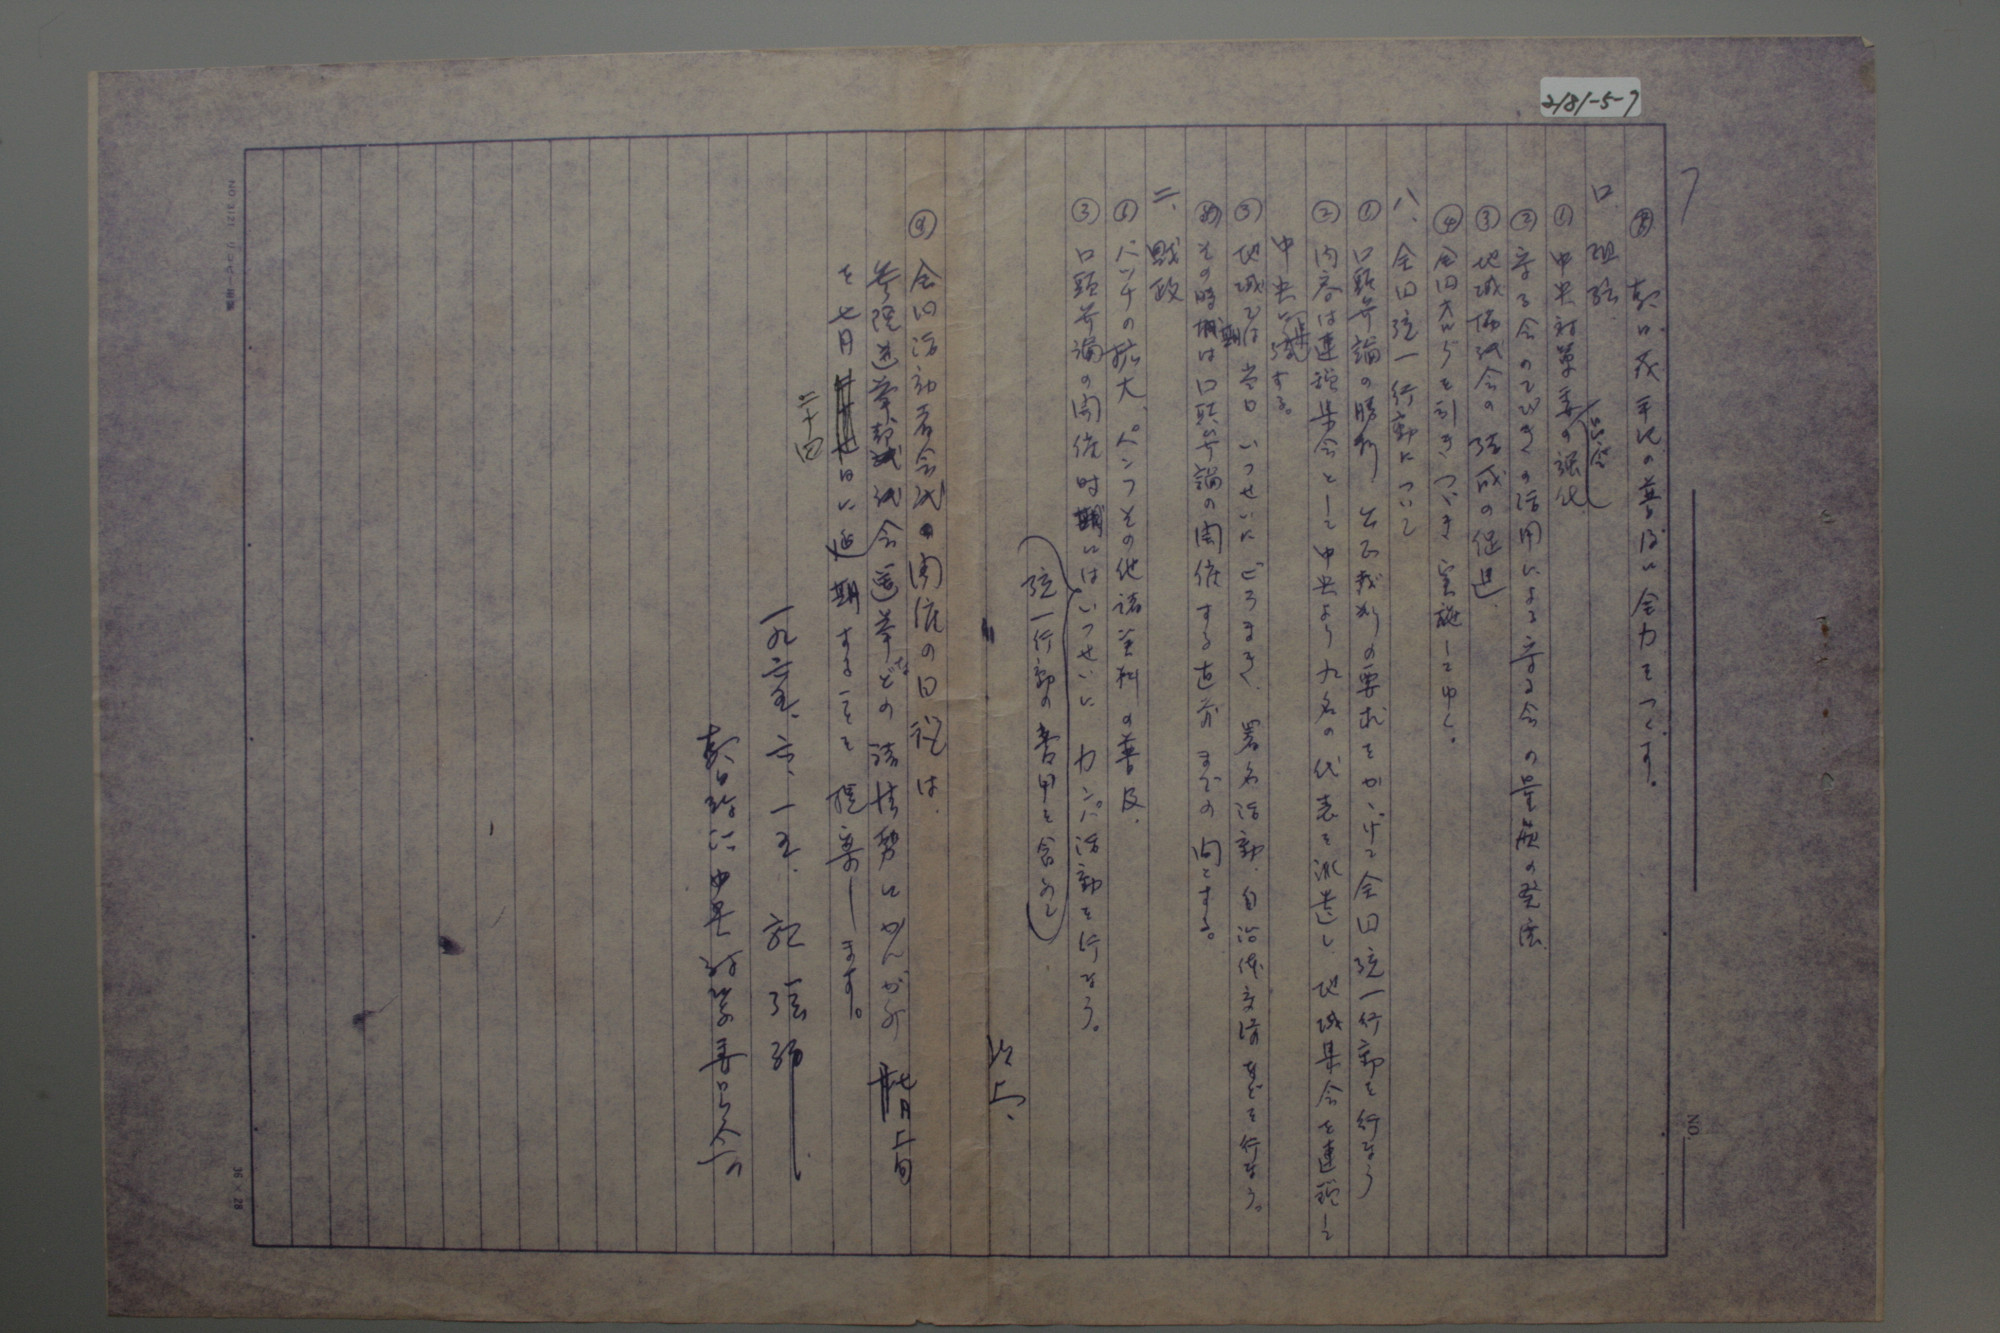 2181-5-7
7
NO.
⑧ 朝日茂手記の普及に全力をつくす。
ロ、組織
① 中央対策委員会の強化
② 守る会のてびきの活用による守る会の量質の発展
③ 地域協議会の結成の促進
④ 全国大会を引きつづき実施してゆく。
ハ、全国統一行動について
① 口頭弁論の勝利 公正裁判の要求をかゝげて全国統一行動を行なう
② 内容は連鎖集会として中央より九名の代表を派遣し、地域集会を連鎖して
中央に集結する。
③ 地域では当日いっせいにビラまき、署名活動、自治体交渉などを行なう。
その時期は口頭弁論の開催する直前までの間とする。
ニ、財政
① バッチの拡大、パンフその他諸資料の普及、
③ 口頭弁論の開催時期にはいっせいにカンパ活動を行なう。
(統一行動の費用を含めて)
以上、
④ 全国活動者会議の開催の日程は、
参院選挙都議会選挙などの諸情勢にかんがみ 七月上旬
を七月二十四日に延期することを提案します。
一九六五、六、一五、
朝日訴訟中央対策委員会
NO 3121
36 × 28